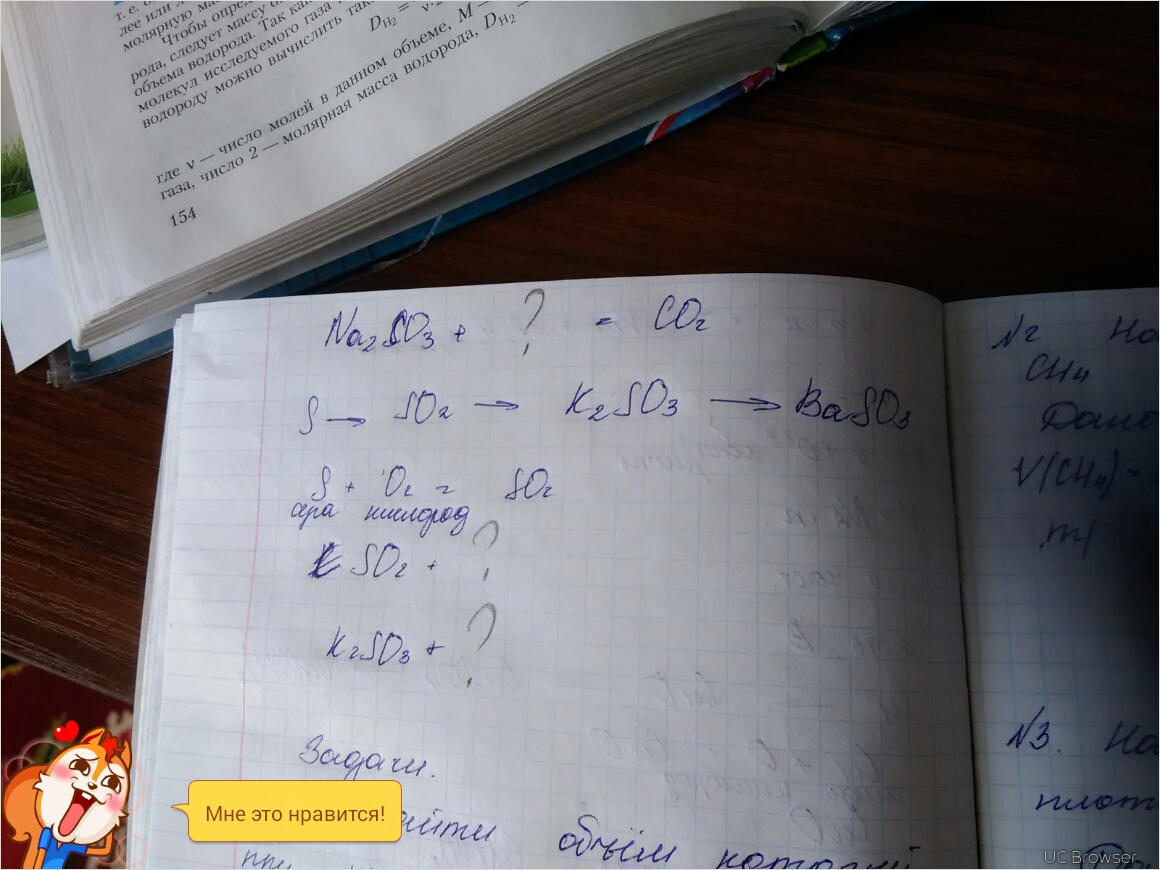 т. е. о
лее или л
молярную ма
Чтобы опред
рода, следует массу о
объема водорода. Так как
молекул исследуемого газа
водороду можно вычислить так
D H₂ =
где ν — число молей в данном объеме, M —
газа, число 2 — молярная масса водорода, D H₂ —
154
Na₂SO₃ + ? = CO₂
S → SO₂ → K₂SO₃ → BaSO₃
S + O₂ = SO₂
сера кислород
SO₂ + ?
K₂SO₃ + ?
Задачи.
айти объём который
при
N2 На
CH₄
Дано
V(CH₄) -
m(
N3. На
плот
Мне это нравится!
UC Browser